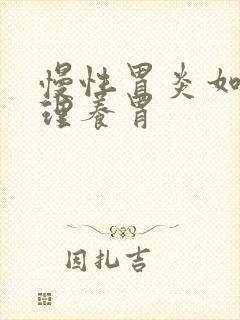 慢性胃炎如
理养胃
因扎吉